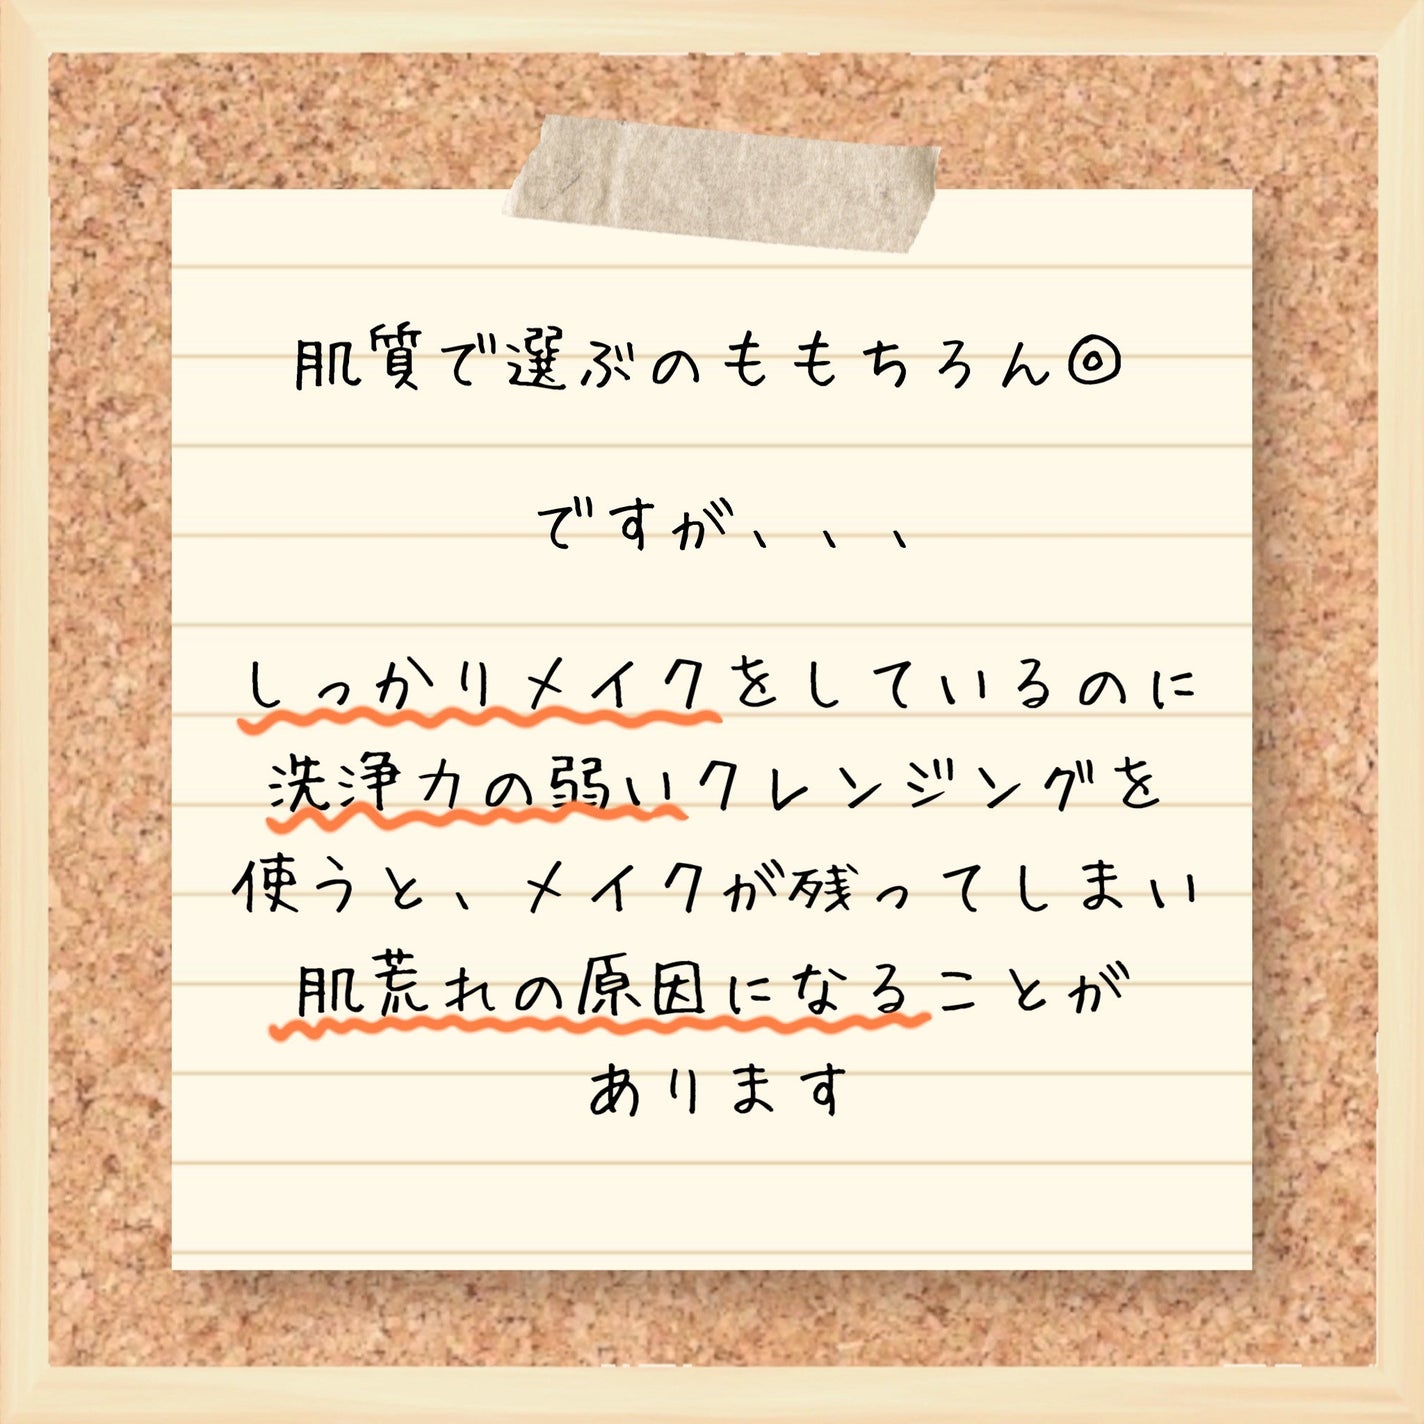 肌質で選ぶのももちろん◎
ですが、、、
しっかりメイクをしているのに
洗浄力の弱いクレンジングを
使うと、メイクが残ってしまい
肌荒れの原因になることが
あります